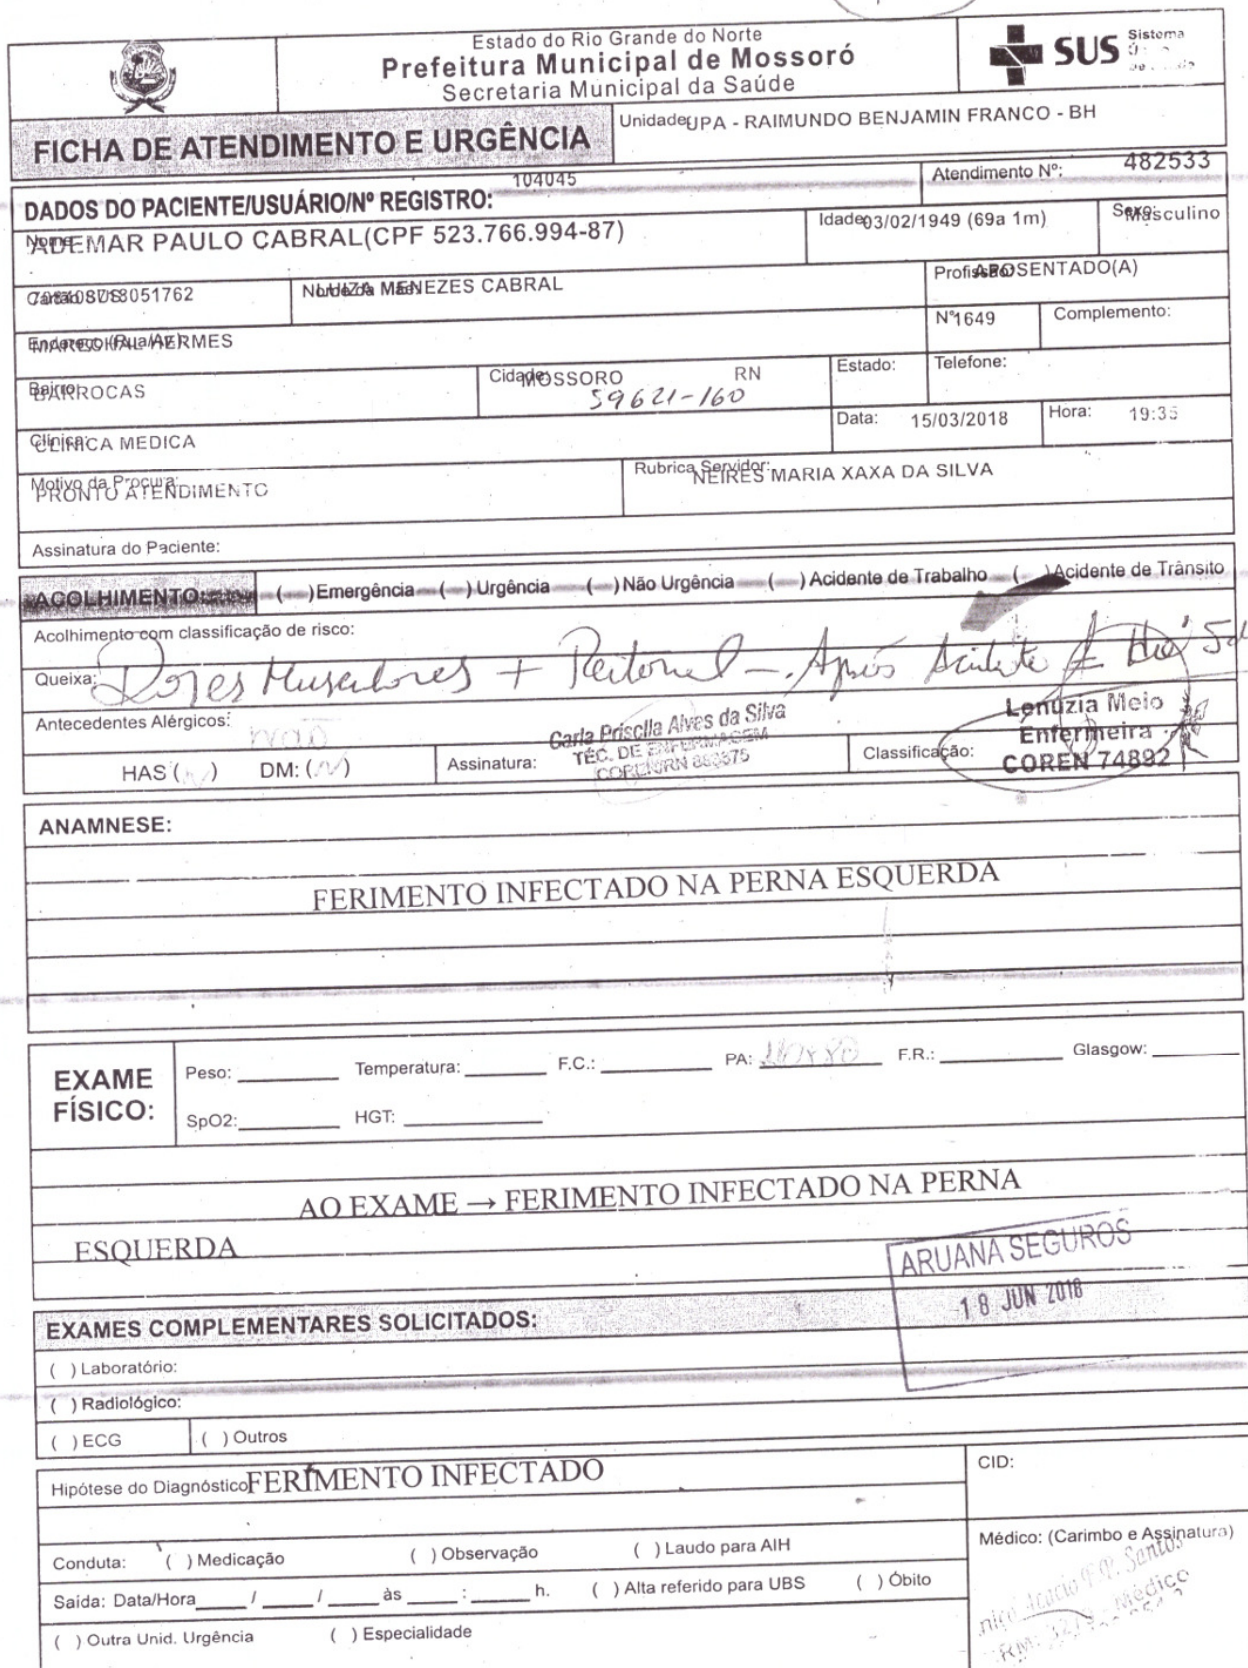 Estado do Rio Grande do Norte
Prefeitura Municipal de Mossoró
Secretaria Municipal da Saúde
SUS Sistema
FICHA DE ATENDIMENTO E URGÊNCIA
Unidade: UPA - RAIMUNDO BENJAMIN FRANCO - BH
DADOS DO PACIENTE/USUÁRIO/Nº REGISTRO: 104045
Atendimento Nº: 482533
Nome: ADEMAR PAULO CABRAL(CPF 523.766.994-87)
Idade: 03/02/1949 (69a 1m)
Sexo: Masculino
Cartão SUS: 708408718051762
Nome da Mãe: LUIZA MENEZES CABRAL
Profissão: APOSENTADO(A)
Endereço: (Rua/Av) MARECHAL HERMES
Nº 1649
Complemento:
Bairro: BARROCAS
Cidade: MOSSORO RN
59621-160
Estado:
Telefone:
Clínica: CLINICA MEDICA
Data: 15/03/2018
Hora: 19:35
Motivo da Procura: PRONTO ATENDIMENTO
Rubrica Servidor: NEIRES MARIA XAXA DA SILVA
Assinatura do Paciente:
ACOLHIMENTO: ( )Emergência ( )Urgência ( )Não Urgência ( )Acidente de Trabalho ( )Acidente de Trânsito
Acolhimento com classificação de risco:
Queixa: Dores Musculares + - Após Há 5d
Antecedentes Alérgicos: não
HAS (N) DM: (N)
Assinatura: Carla Priscila Alves da Silva
TÉC. DE ENFERMAGEM
Classificação: Lenúzia Melo
Enfermeira
COREN 74892
ANAMNESE:
FERIMENTO INFECTADO NA PERNA ESQUERDA
EXAME FÍSICO:
Peso: Temperatura: F.C.: PA: F.R.: Glasgow:
SpO2: HGT:
AO EXAME → FERIMENTO INFECTADO NA PERNA
ESQUERDA
ARUANA SEGUROS
18 JUN 2018
EXAMES COMPLEMENTARES SOLICITADOS:
( ) Laboratório:
( ) Radiológico:
( ) ECG ( ) Outros
Hipótese do Diagnóstico FERIMENTO INFECTADO
CID:
Conduta: ( ) Medicação ( ) Observação ( ) Laudo para AIH
Médico: (Carimbo e Assinatura)
Saída: Data/Hora / / às : h. ( ) Alta referido para UBS ( ) Óbito
Santos
Médico
( ) Outra Unid. Urgência ( ) Especialidade